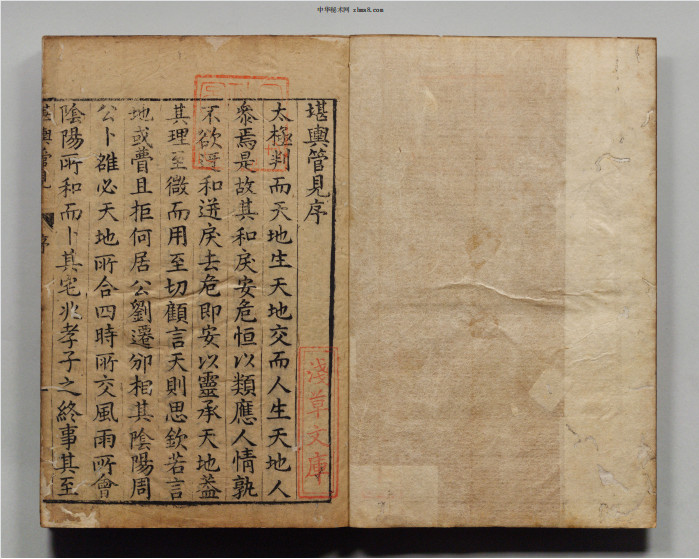 中华秘术网 zhms8.com
堪輿管見序
太極判而天地生天地交而人生天地人
叅焉是故其和戾安危恒以類應人情孰
不欲和迸戾去危即安以靈承天地葢
其理至微而用至切顧言天則思欽若言
地或且拒何居公劉遷邠相其陰陽周
公卜雒必天地所合四時所交風雨所會
陰陽所和而卜其宅兆孝子之終事其至
堪輿管見
序
淺草文庫